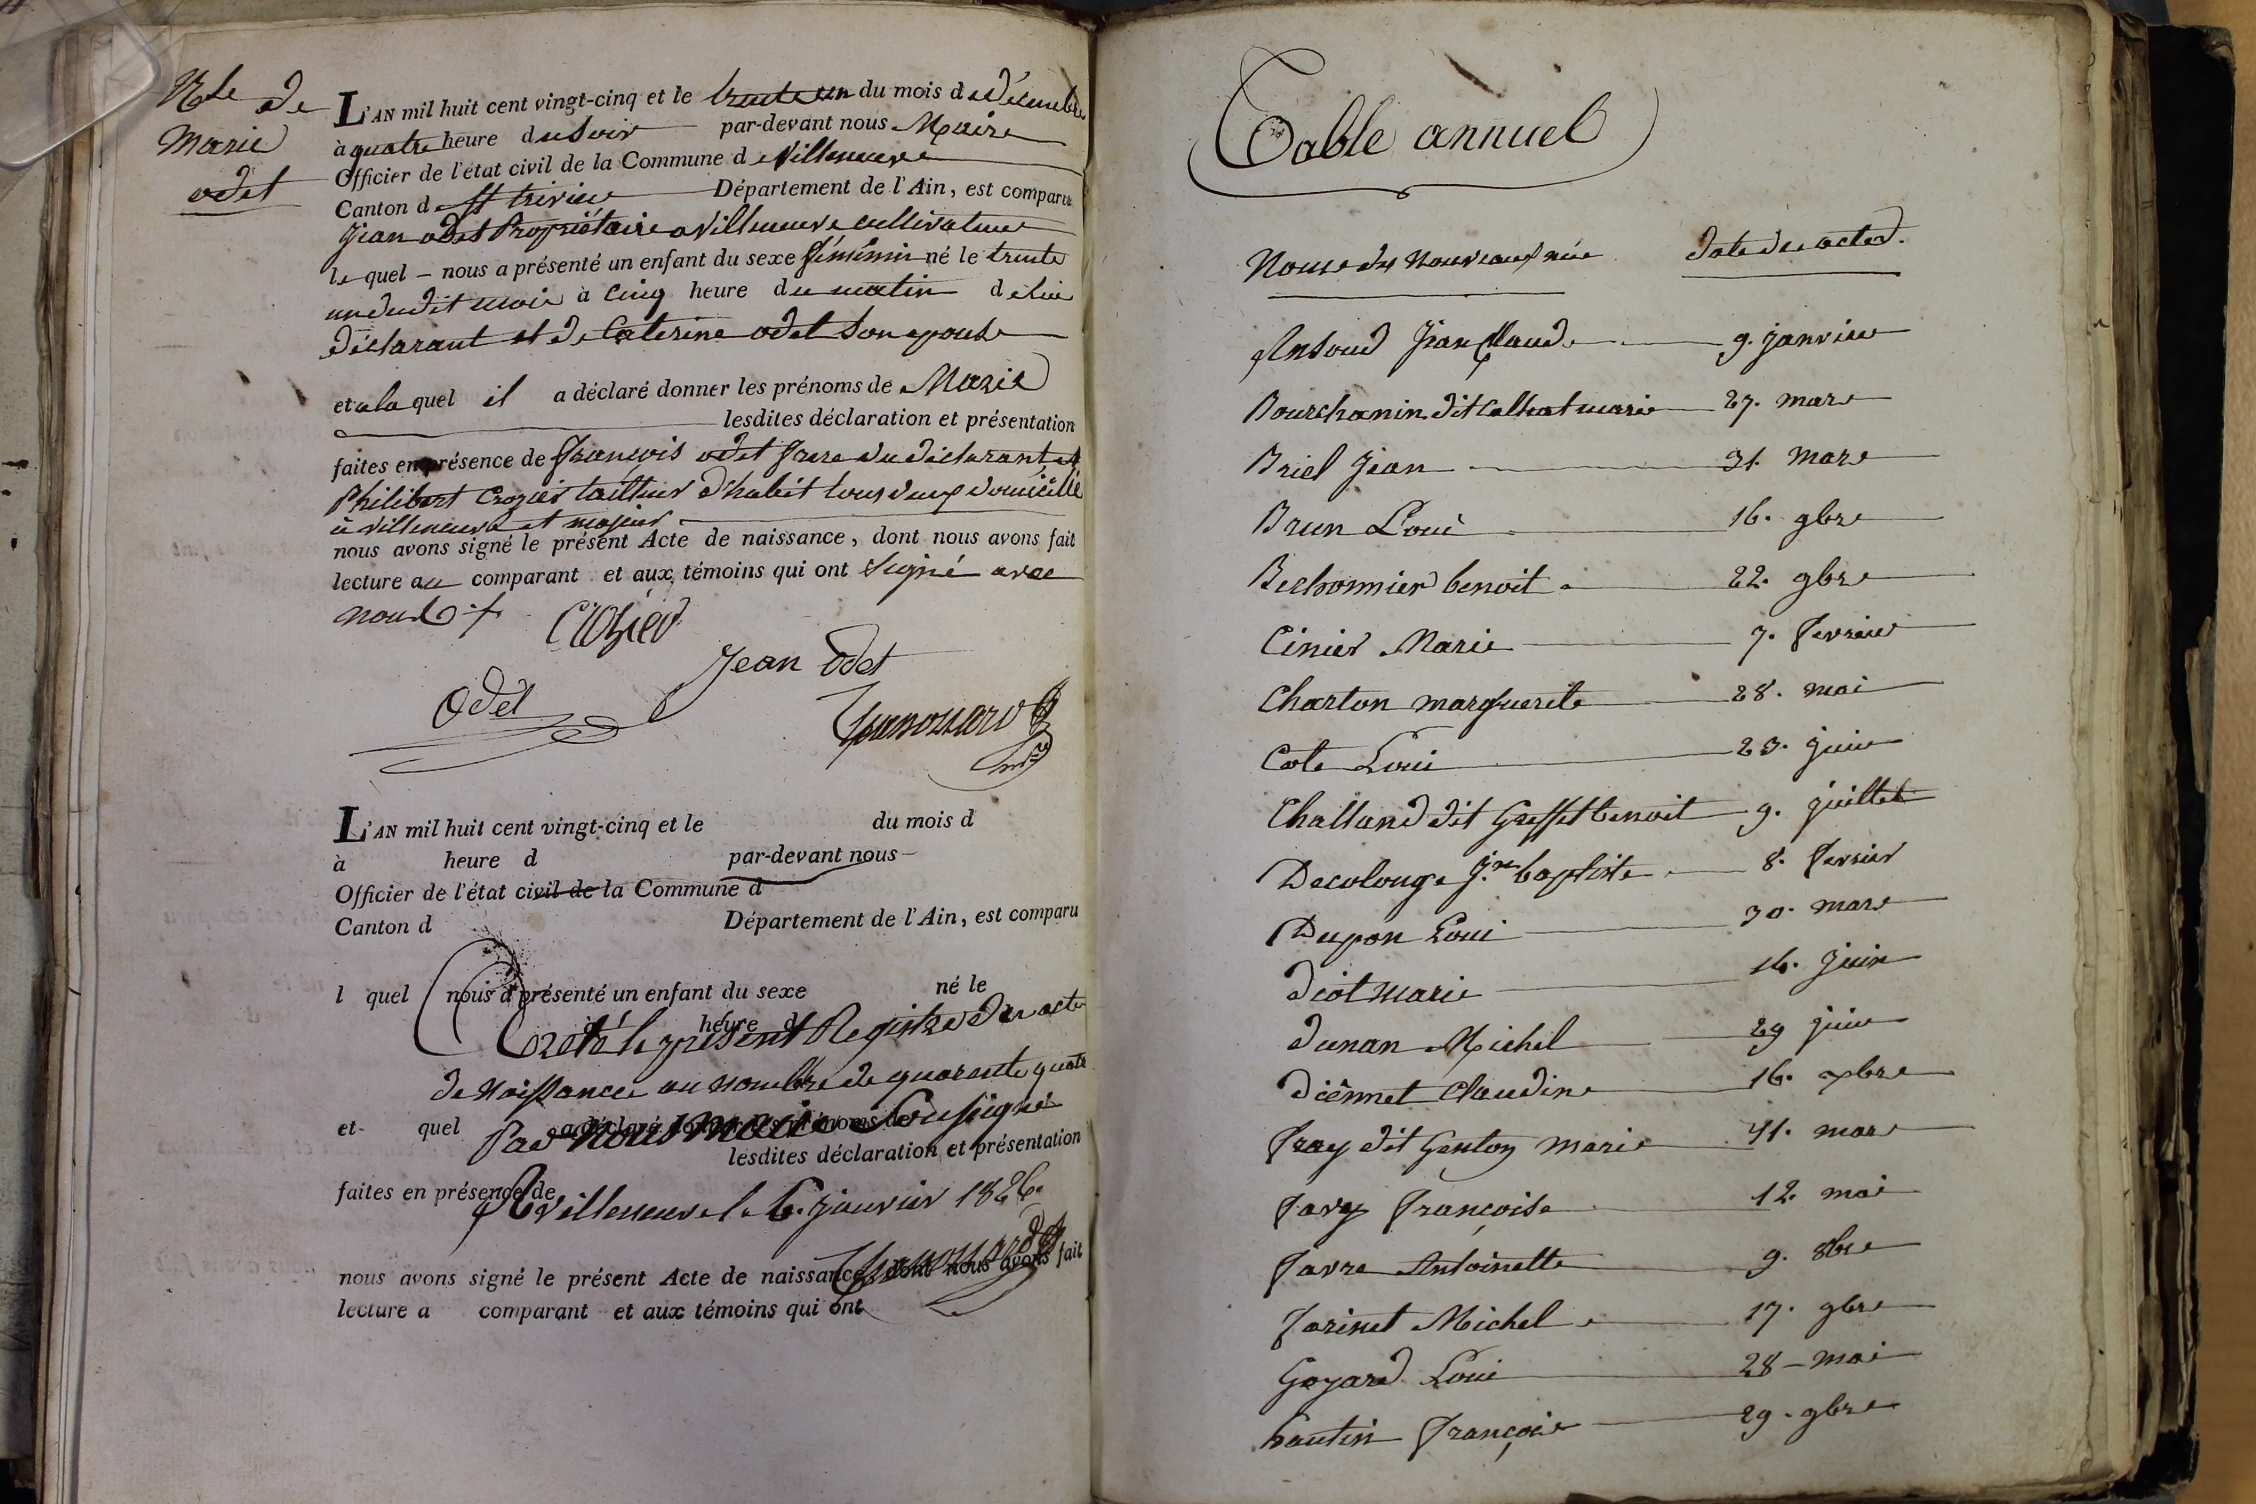 Nce de
Marie
odet
L'AN mil huit cent vingt-cinq et le trente un du mois de Décembre
à quatre heure du soir par-devant nous Maire
Officier de l'état civil de la Commune de Villeneuve
Canton de St trivier Département de l'Ain, est comparu
Jean odet Propriétaire a Villeneuve cultivateur
le quel – nous a présenté un enfant du sexe féminin né le trente
un dudit mois à cinq heure du matin de lui
déclarant et de Caterine odet son epouse
et a la quel il a déclaré donner les prénoms de Marie
lesdites déclaration et présentation
faites en présence de francois odet frere du déclarant et
Philibert Crozier tailleur d'habit tous deux domicilié
à villeneuve et majeur
nous avons signé le présent Acte de naissance, dont nous avons fait
lecture au comparant et aux témoins qui ont signé avec
nous
Crozier
Jean Odet
Odet
L'AN mil huit cent vingt-cinq et le du mois d
à heure d par-devant nous
Officier de l'état civil de la Commune d
Canton d Département de l'Ain, est comparu
l quel nous a présenté un enfant du sexe né le
à heure d
Areté le présent Registre des acte
de Naissance au nombre de quarente quatre
et quel a déclaré donner les prénoms de
Par nous maire soussigné
lesdites déclaration et présentation
faites en présence de
A villeneuve le 6. janvier 1826.
nous avons signé le présent Acte de naissance, dont nous avons fait
lecture a comparant et aux témoins qui ont
Table annuel
Noms des Nouveaux née date des acted.
Ansoud Jean Claude 9. janvier
Bourchanin dit Calhat marie 27. mars
Briel Jean 31. mars
Brun Loui 16. 9bre
Bechonnier benoit 22. 9bre
Cinier Marie 7. fevrier
Charton marguerite 28. mai
Cote Loui 23. juin
Challand dit Greffet benoit 9. juillet
Decolonge J.n baptiste 8. fevrier
Dupon Loui 30. mars
diot Marie 16. juin
dunan Michel 29 juin
diénnet Claudine 16. xbre
fray dit Genton marie 11. mars
favry françoise 12. mai
favre Antoinette 9. 8bre
farinet Michel 17. 9bre
Goyard Loui 28 – mai
hautin françois 29. 9bre